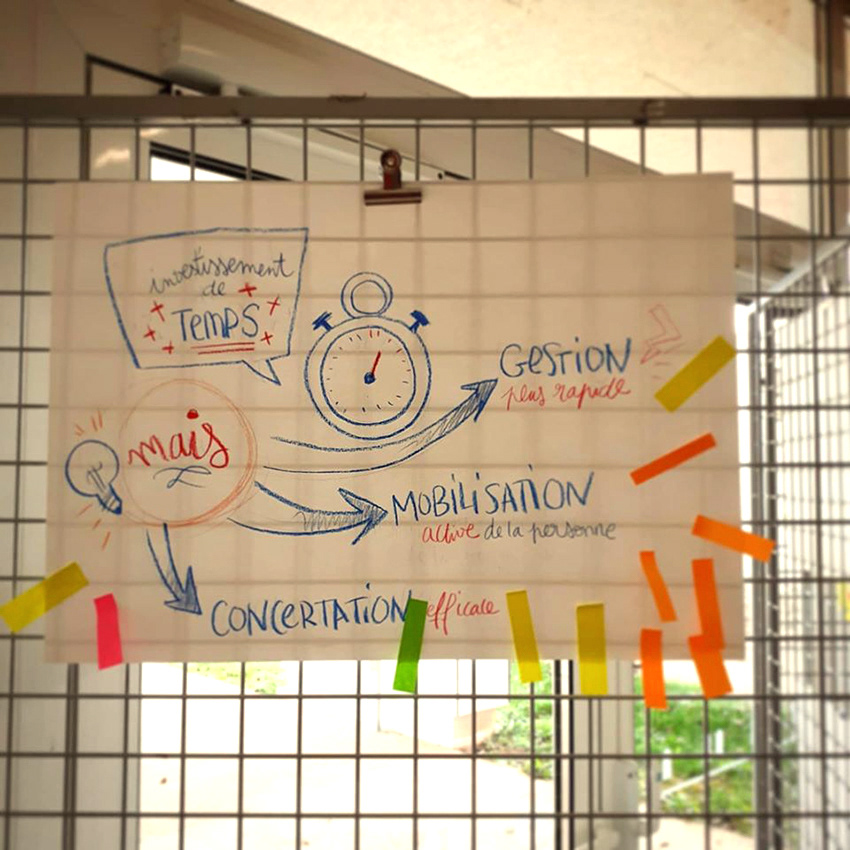 investissement
de
TEMPS
mais
GESTION
plus rapide
MOBILISATION
active de la personne
CONCERTATION efficace